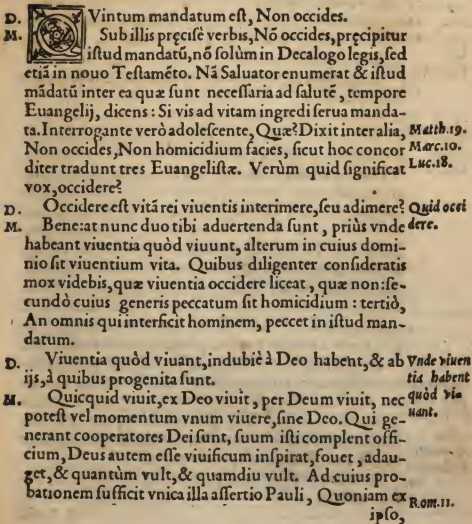 D. QVintum mandatum eſt, Non occides.
M. Sub illis pręciſè verbis, Nõ occides, pręcipitur
iſtud mandatũ, nõ ſolùm in Decalogo legis, ſed
etiã in nouo Teſtamẽto. Nã Saluator enumerat & iſtud
mãdatũ inter ea quæ ſunt neceſſaria ad ſalutẽ, tempore
Euangelij, dicens: Si vis ad vitam ingredi ſerua manda-
ta. Interrogante verò adoleſcente, Quæ? Dixit inter alia, Matth.19.
Non occides, Non homicidium facies, ſicut hoc concor Marc.10.
diter tradunt tres Euangeliſtæ. Verùm quid ſignificat Luc.18.
vox, occidere?
D. Occidere eſt vitã rei viuentis interimere, ſeu adimere? Quid occi
M. Bene: at nunc duo tibi aduertenda ſunt, priùs vnde dere.
habeant viuentia quòd viuunt, alterum in cuius domi-
nio ſit viuentium vita. Quibus diligenter conſideratis
mox videbis, quæ viuentia occidere liceat, quæ non: ſe-
cundò cuius generis peccatum ſit homicidium: tertiò,
An omnis qui interficit hominem, peccet in iſtud man-
datum.
D. Viuentia quòd viuant, indubiè à Deo habent, & ab Vnde viuen
ijs, à quibus progenita ſunt. tia habent
M. Quicquid viuit, ex Deo viuit, per Deum viuit, nec quòd vi-
poteſt vel momentum vnum viuere, ſine Deo. Qui ge- uant.
nerant cooperatores Dei ſunt, ſuum iſti complent offi-
cium, Deus autem eſſe viuificum inſpirat, fouet, adau-
get, & quantùm vult, & quamdiu vult. Ad cuius pro-
bationem ſufficit vnica illa aſſertio Pauli, Quoniam ex Rom.11.
ipſo,